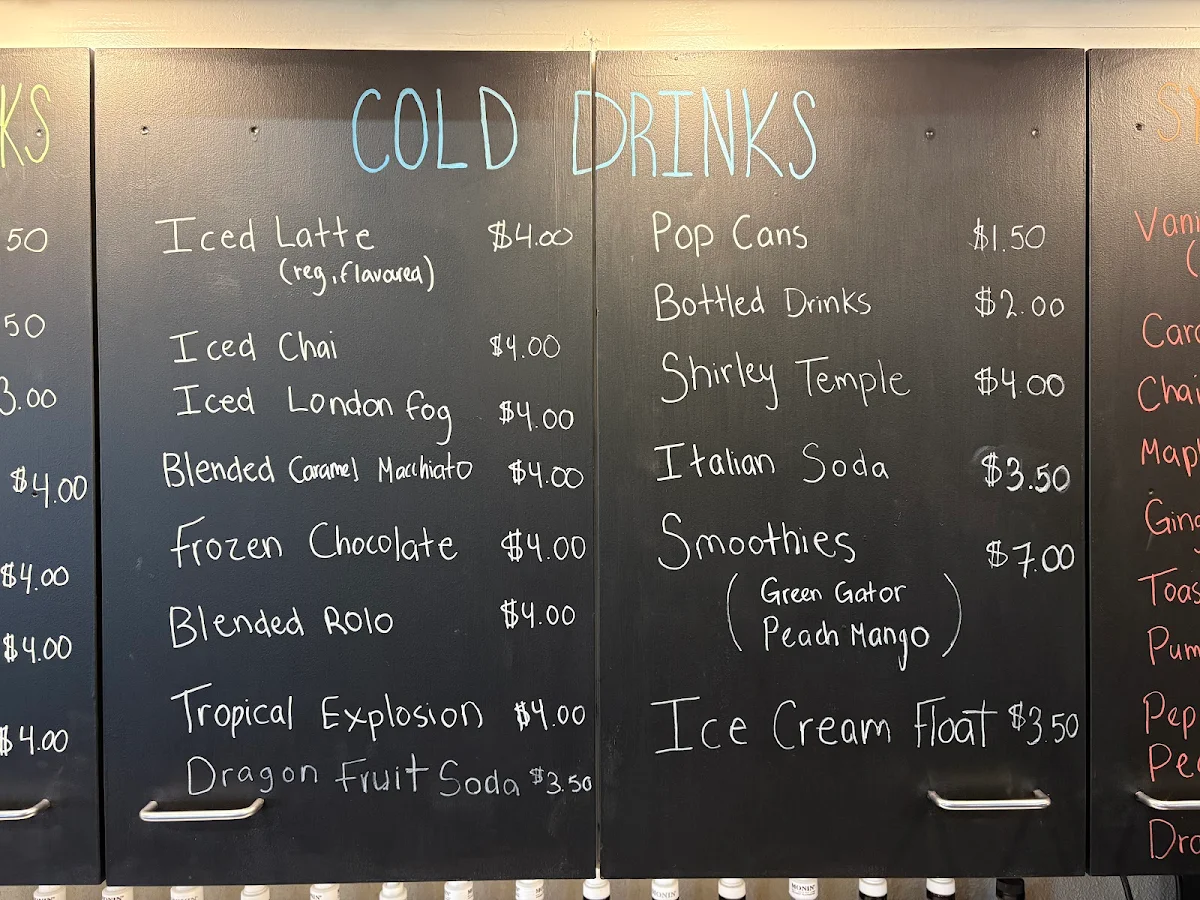 KS
50
50
3.00
$4.00
$4.00
$4.00
$4.00
COLD DRINKS
Iced Latte $4.00
(reg, flavoured)
Iced Chai $4.00
Iced London fog $4.00
Blended Caramel Macchiato $4.00
Frozen Chocolate $4.00
Blended Rolo $4.00
Tropical Explosion $4.00
Dragon Fruit Soda $3.50
Pop Cans $1.50
Bottled Drinks $2.00
Shirley Temple $4.00
Italian Soda $3.50
Smoothies $7.00
(Green Gator
Peach Mango)
Ice Cream Float $3.50
Vani
(
Cara
Chai
Mapl
Ging
Toas
Pum
Pep
Pe
Dra
MONIN